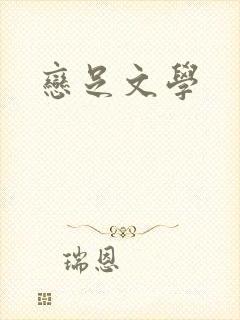 戀足文學
瑞恩